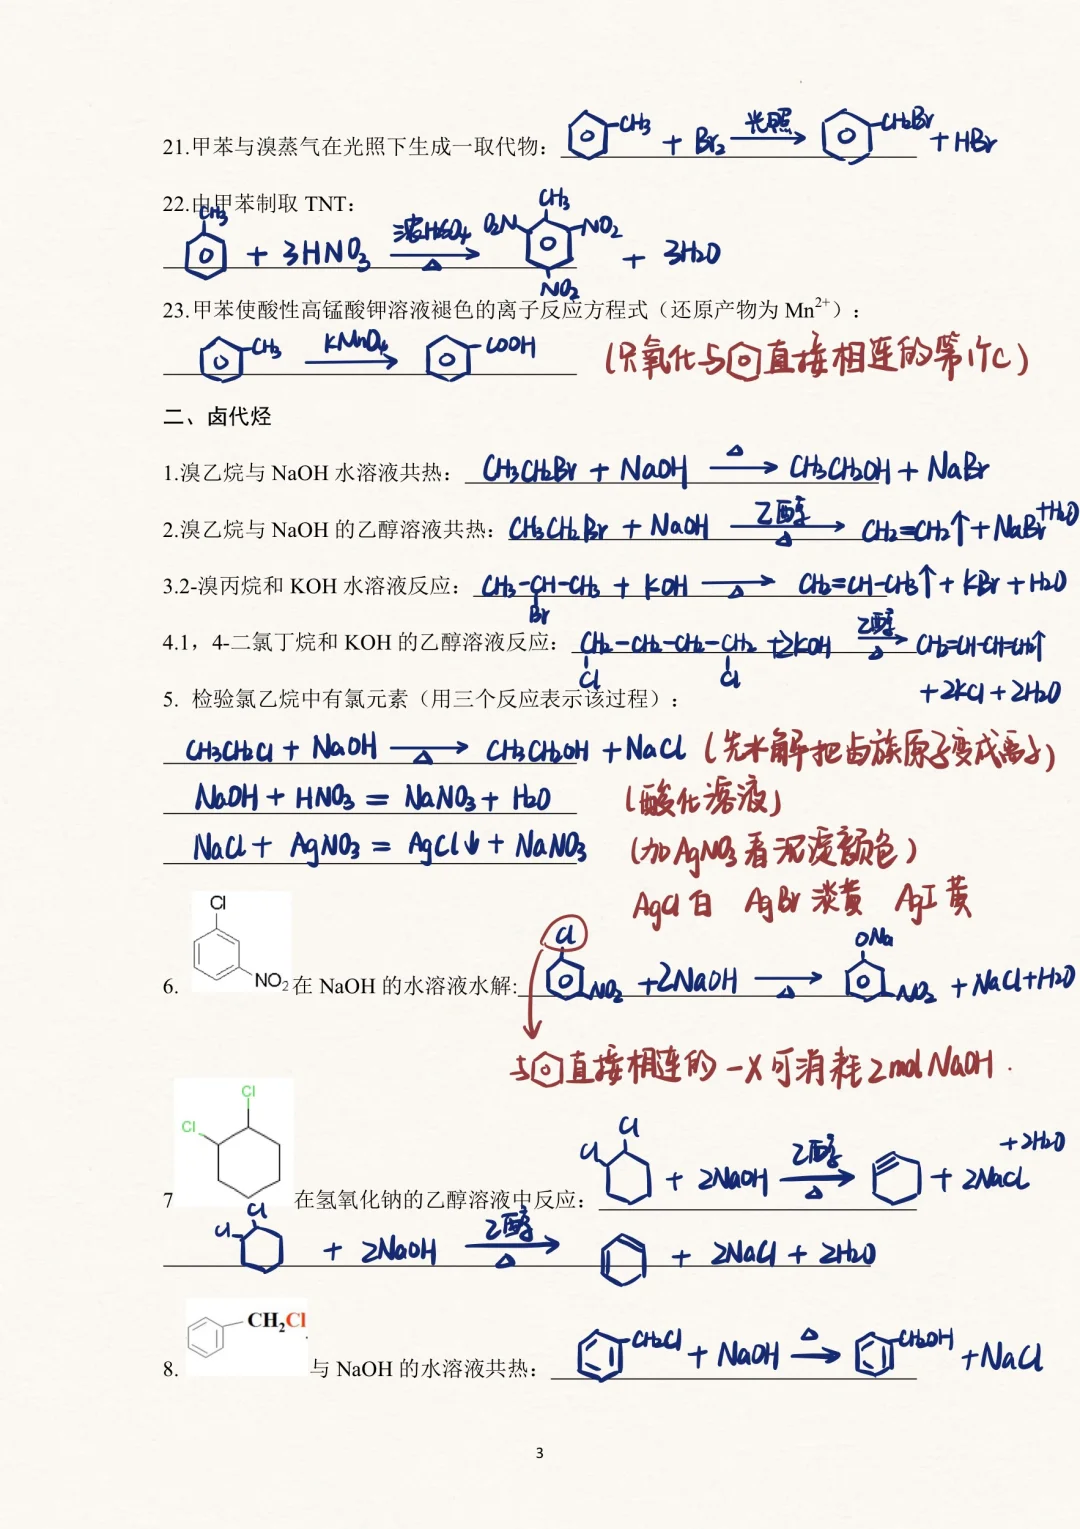 21.甲苯与溴蒸气在光照下生成一取代物: CH3 + Br2 光照 CH2Br + HBr
22.由甲苯制取 TNT:
CH3 + 3HNO3 浓H2SO4 △ CH3 O2N NO2 NO2 + 3H2O
23.甲苯使酸性高锰酸钾溶液褪色的离子反应方程式（还原产物为 Mn2+）:
CH3 KMnO4 COOH (只氧化与 直接相连的第1个C)
二、卤代烃
1.溴乙烷与 NaOH 水溶液共热: CH3CH2Br + NaOH △ CH3CH2OH + NaBr
2.溴乙烷与 NaOH 的乙醇溶液共热: CH3CH2Br + NaOH 乙醇 △ CH2=CH2↑ + NaBr + H2O
3.2-溴丙烷和 KOH 水溶液反应: CH3-CH-CH3 + KOH △ CH2=CH-CH3↑ + KBr + H2O
Br
4.1，4-二氯丁烷和 KOH 的乙醇溶液反应: CH2-CH2-CH2-CH2 + 2KOH 乙醇 △ CH2=CH-CH=CH2↑
Cl Cl + 2KCl + 2H2O
5. 检验氯乙烷中有氯元素（用三个反应表示该过程）:
CH3CH2Cl + NaOH △ CH3CH2OH + NaCl (先水解把卤族原子变成离子)
NaOH + HNO3 = NaNO3 + H2O (酸化溶液)
NaCl + AgNO3 = AgCl↓ + NaNO3 (加AgNO3看沉淀颜色)
AgCl白 AgBr淡黄 AgI黄
6. Cl NO2 在 NaOH 的水溶液水解: Cl NO2 + 2NaOH △ ONa NO2 + NaCl + H2O
与 直接相连的-X可消耗2mol NaOH.
7 Cl Cl 在氢氧化钠的乙醇溶液中反应: Cl Cl + 2NaOH 乙醇 △ + 2NaCl + 2H2O
Cl Cl + 2NaOH 乙醇 △ + 2NaCl + 2H2O
8. CH2Cl 与 NaOH 的水溶液共热: CH2Cl + NaOH △ CH2OH + NaCl
3